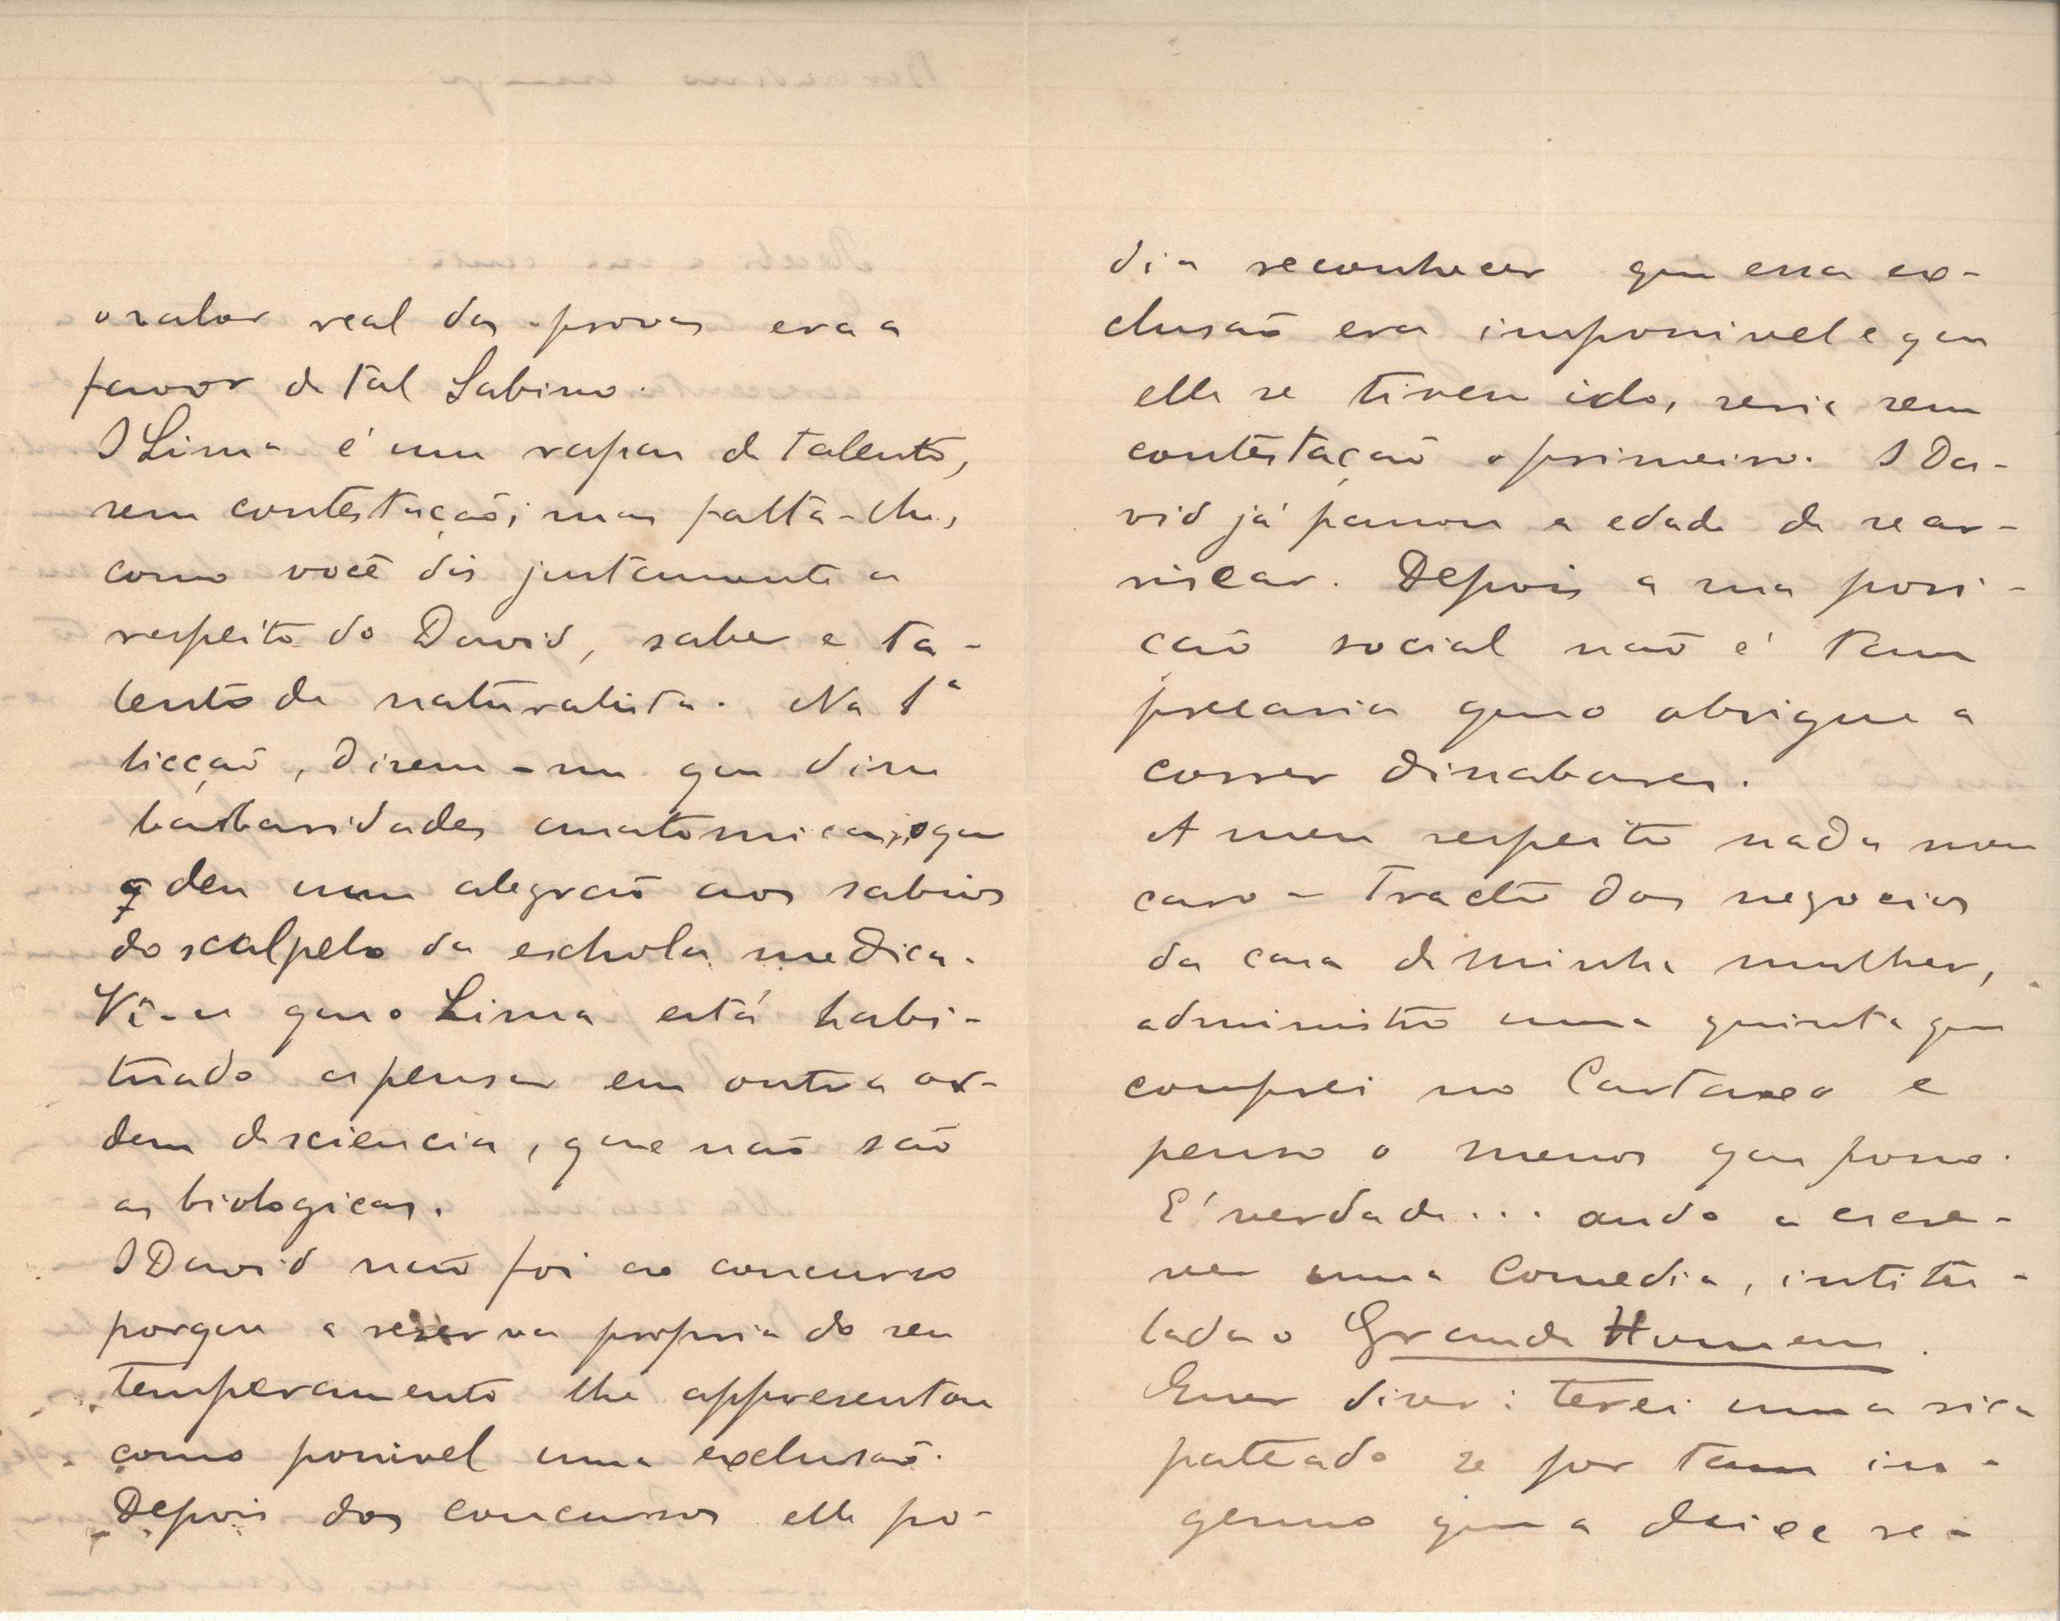 o valor real das provas era a
favor de tal Sabino.
O Lima é um rapaz de talento,
sem contestação; mas falta-lhe,
como você diz justamente a
respeito do David, saber e ta-
lento de naturalista. Na 1ª
licção, dizem-me que disse
barbaridades anatomicas, o que
deu um alegrão aos sabios
do scalpelo da eschola medica.
Vê-se que o Lima está habi-
tuado a pensar em outra or-
dem de sciencia, que não são
as biologicas.
O David não foi ao concurso
porque a reserva propria do seu
temperamento lhe appresentou
como possivel uma exclusão.
Depois dos concursos elle po-
dia reconhecer que essa ex-
clusão era impossivel e que
elle se tivesse ido, seria sem
contestação o primeiro. O Da-
vid já passou a edade de se ar-
riscar. Depois a sua posi-
ção social não é tam
precaria que o obrigue a
correr dissabores.
A meu respeito nada meu
caro - Tracto dos negocios
da casa de minha mulher,
administro uma quinta que
comprei no Cartaxo e
penso o menos que posso.
E' verdade... ando a escre-
ver uma Comedia, intitu-
lada o Grande Homem.
Quer dizer: terei uma rica
pateada se for tam in-
genuo que a deixe re-